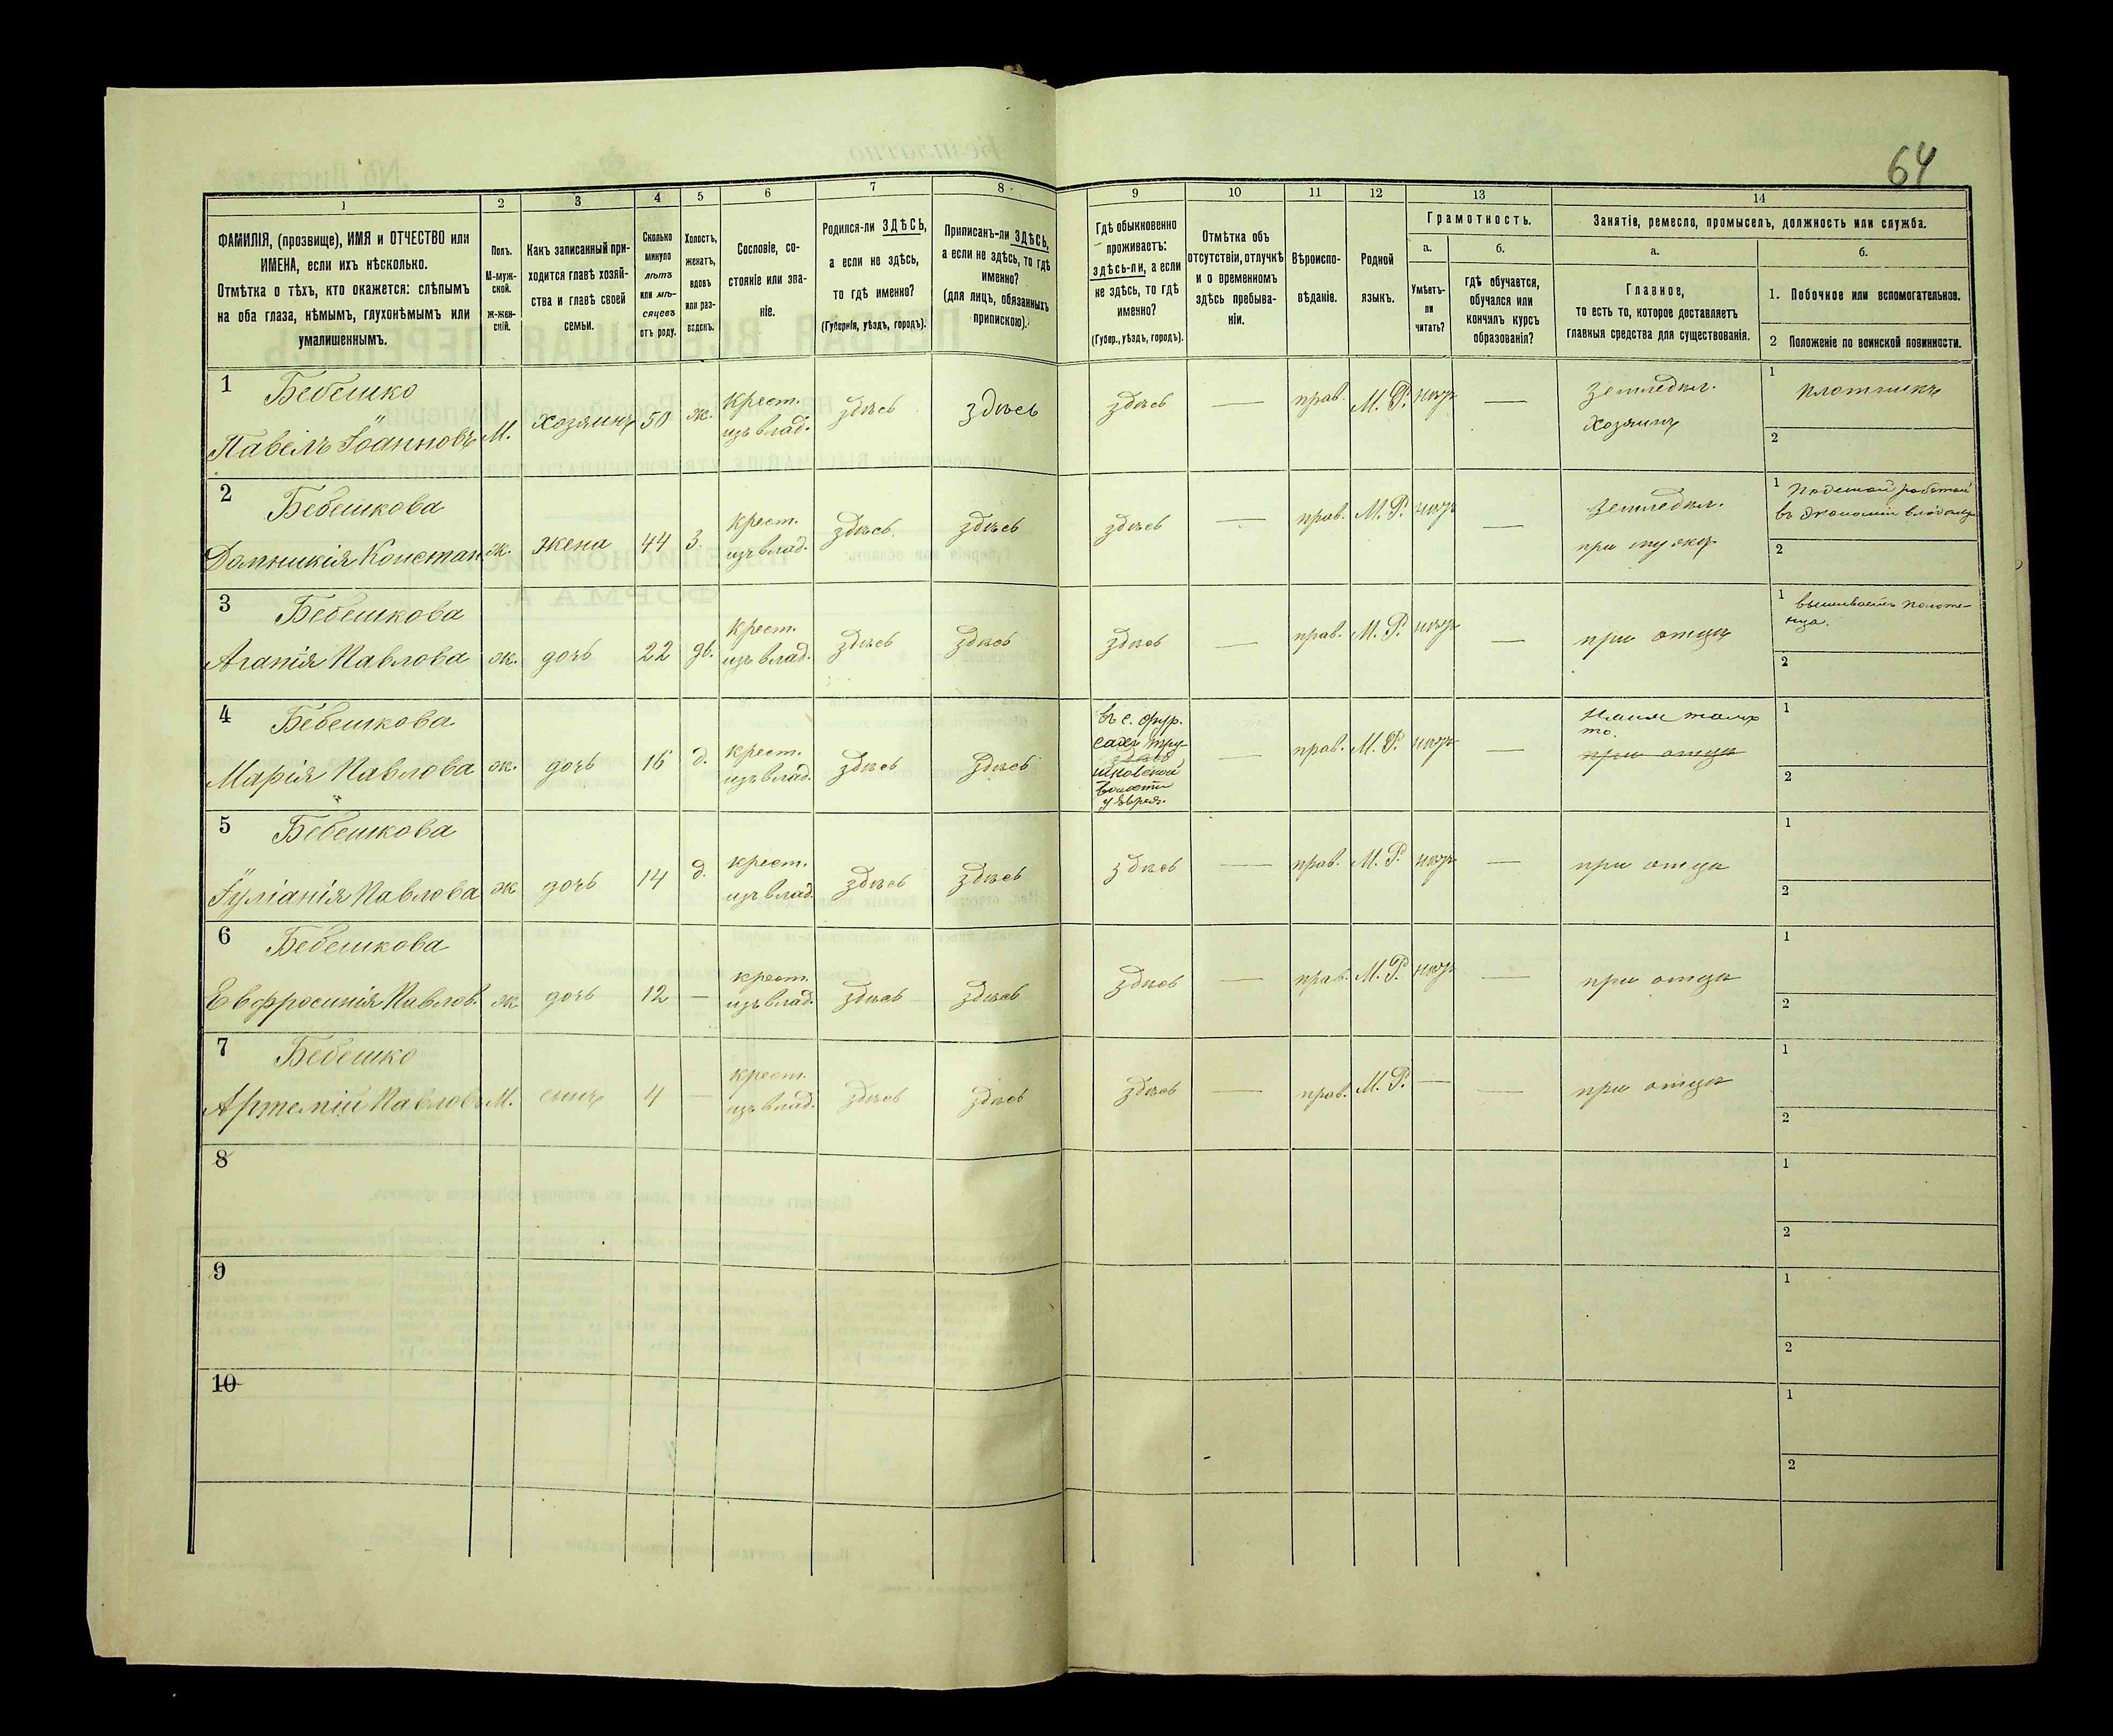 64
1
2
3
4
5
6
7
8
9
10
11
12
13
14
ФАМИЛІЯ, (прозвище), ИМЯ и ОТЧЕСТВО или
ИМЕНА, если ихъ нѣсколько.
Отмѣтка о тѣхъ, кто окажется: слѣпымъ
на оба глаза, нѣмымъ, глухонѣмымъ или
умалишеннымъ.
Полъ.
М-муж-
ской.
Ж-жен-
скій.
Какъ записанный при-
ходится главѣ хозяй-
ства и главѣ своей
семьи.
Сколько
минуло
лѣтъ
или мѣ-
сяцевъ
отъ роду.
Холостъ,
женатъ,
вдовъ
или раз-
веденъ.
Сословіе, со-
стояніе или зва-
ніе.
Родился-ли ЗДѢСЬ,
а если не здѣсь,
то гдѣ именно?
(Губернія, уѣздъ, городъ).
Приписанъ-ли ЗДѢСЬ,
а если не здѣсь, то гдѣ
именно?
(для лицъ, обязанныхъ
припискою).
Гдѣ обыкновенно
проживаетъ:
здѣсь-ли, а если
не здѣсь, то гдѣ
именно?
(Губер., уѣздъ, городъ).
Отмѣтка объ
отсутствіи, отлучкѣ
и о временномъ
здѣсь пребыва-
ніи.
Вѣроиспо-
вѣданіе.
Родной
языкъ.
Грамотность.
а.
б.
Умѣетъ-
ли
читать?
гдѣ обучается,
обучался или
кончилъ курсъ
образованія?
Занятіе, ремесло, промыселъ, должность или служба.
а.
б.
Главное,
то есть то, которое доставляетъ
главныя средства для существованія.
1. Побочное или вспомогательное.
2 Положеніе по воинской повинности.
1 Бебешко
Павелъ Іоанновъ М. хозяинъ 50 ж. крест.
изъ влад. здѣсь здѣсь здѣсь — прав. М. Р. нѣтъ — земледѣл.
хозяинъ
1 плотникъ
2
2 Бебешкова
Домникія Констан. ж. жена 44 з. крест.
изъ влад. здѣсь здѣсь здѣсь — прав. М. Р. нѣтъ — земледѣл.
при мужѣ
1 Поденной работой
въ экономіи
2
3 Бебешкова
Агапія Павлова ж. дочь 22 дѣ. крест.
изъ влад. здѣсь здѣсь здѣсь — прав. М. Р. нѣтъ — при отцѣ
1 вышиваетъ полоте-
нца.
2
4 Бебешкова
Марія Павлова ж. дочь 16 д. крест.
изъ влад. здѣсь здѣсь въ с.
здѣсь
волости
— прав. М. Р. нѣтъ —
при отцѣ
1
2
5 Бебешкова
Іуліанія Павлова ж дочь 14 д. крест.
изъ влад здѣсь здѣсь здѣсь — прав. М. Р. нѣтъ — при отцѣ
1
2
6 Бебешкова
Евфросинія Павлов. ж дочь 12 — крест.
изъ влад. здѣсь здѣсь здѣсь — прав. М. Р. нѣтъ — при отцѣ
1
2
7 Бебешко
Артемій Павловъ М. сынъ 4 — крест.
изъ влад. здѣсь здѣсь здѣсь — прав. М. Р. — — при отцѣ
1
2
8
1
2
9
1
2
10
1
2